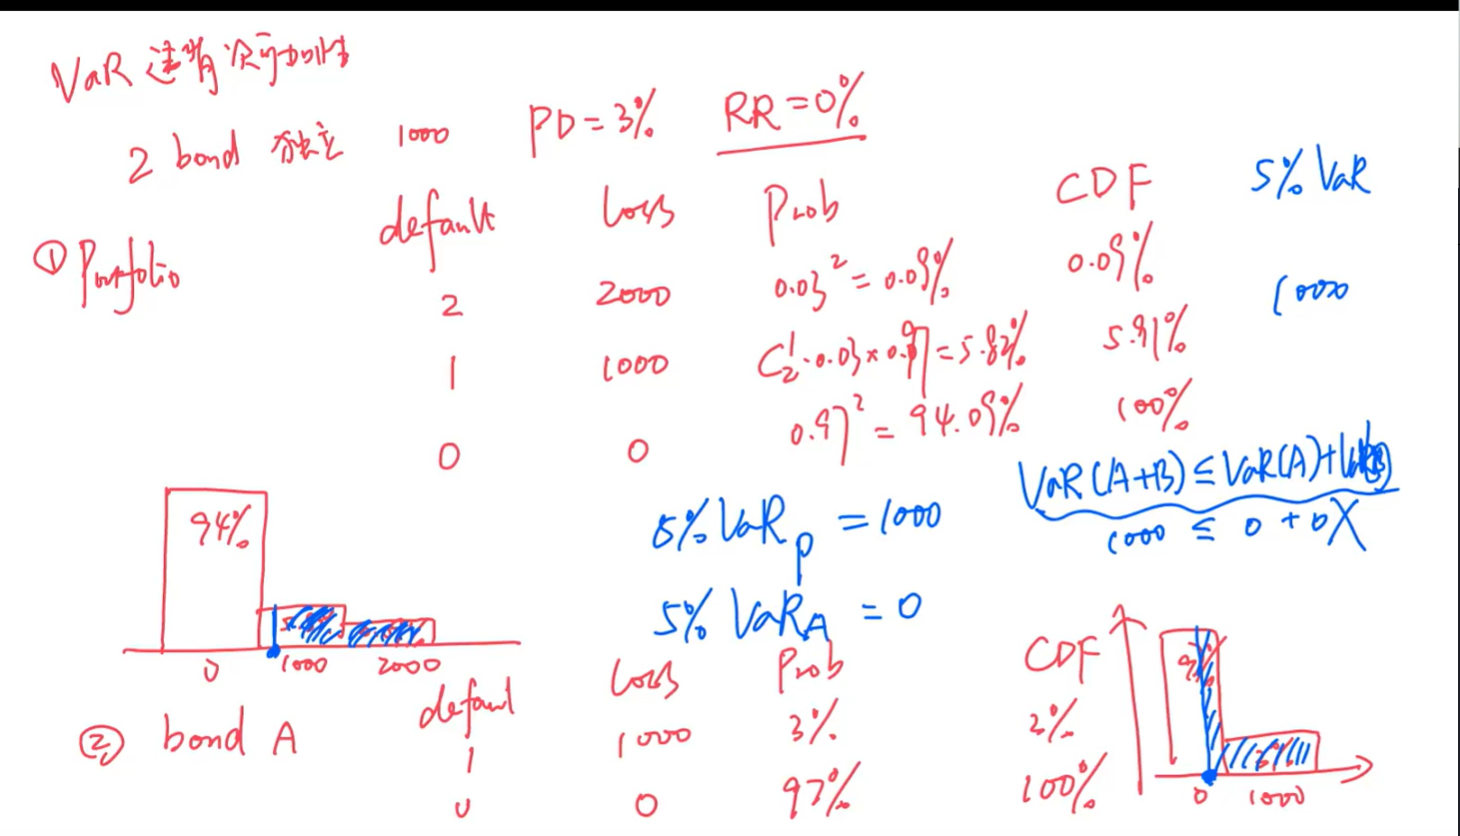 VaR 违背次可加性
2 bond 独立 1000 PD=3% RR=0%
default Loss Prob CDF 5% VaR
① Portfolio
2 2000 0.03² = 0.09% 0.09% 1000
1 1000 C₂¹·0.03×0.97=5.82% 5.91%
0 0 0.97² = 94.09% 100%
VaR(A+B) ≤ VaR(A)+VaR(B)
1000 ≤ 0 + 0 X
94%
5% VaR_p = 1000
5% VaR_A = 0
0 1000 2000
② bond A
defaul Loss Prob CDF
1 1000 3% 3%
0 0 97% 100%
0 1000